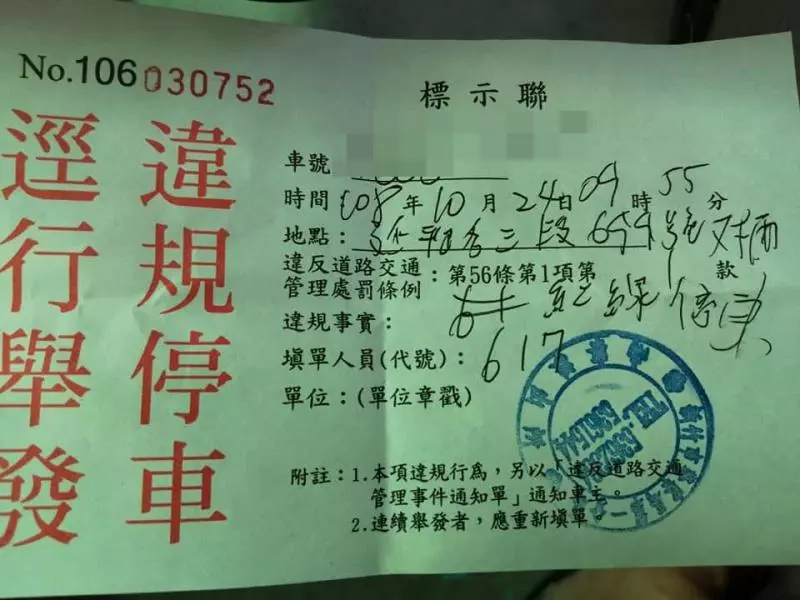 No.106030752
標示聯
違規停車
逕行舉發
車號
時間:108年10月24日09時55分
地點:三段
對面
違反道路交通管理處罰條例:第56條第1項第 款
違規事實:在紅線停車
填單人員(代號):617
單位:(單位章戳)
TEL
附註:1.本項違規行為,另以「違反道路交通
管理事件通知單」通知車主。
2.連續舉發者,應重新填單。